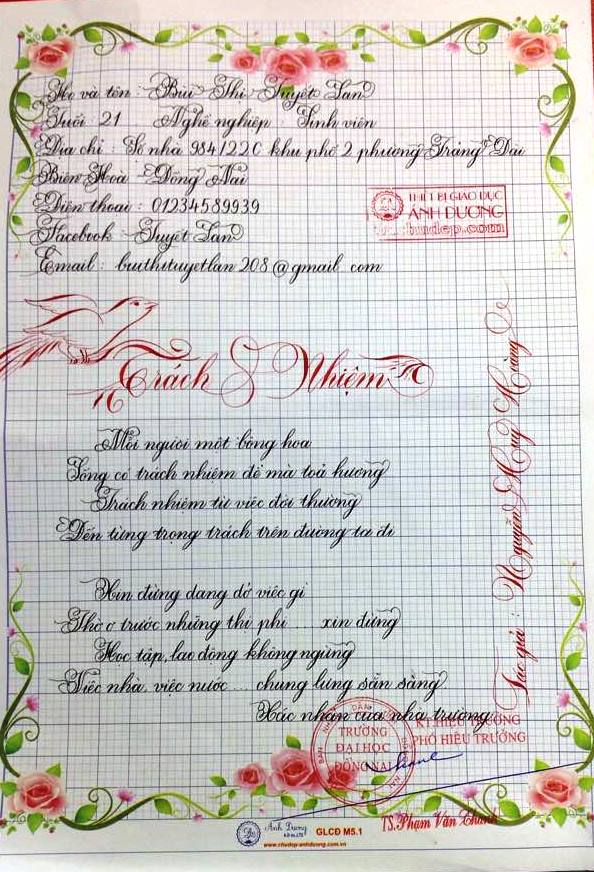 Họ và tên : Bùi Thị Tuyết Lan
Tuổi 21 Nghề nghiệp : Sinh viên
Địa chỉ : Số nhà 984/22C khu phố 2 phường Trảng Dài
Biên Hoà - Đồng Nai
Điện thoại : 01234589939
Facebook : Tuyết Lan
Email : buithituyetlan208@gmail.com
THIẾT BỊ GIÁO DỤC
ÁNH DƯƠNG
Trách Nhiệm
Mỗi người một bông hoa
Sống có trách nhiệm để mà toả hương
Trách nhiệm từ việc đời thường
Đến từng trọng trách trên đường ta đi
Xin đừng dang dở việc gì
Thờ ơ trước những thị phi ... xin đừng
Học tập, lao động không ngừng
Việc nhà, việc nước ... chung lưng sẵn sàng
Tác giả : Nguyễn Huy Hoàng
Xác nhận của nhà trường
KT HIỆU TRƯỞNG
PHÓ HIỆU TRƯỞNG
TRƯỜNG
ĐẠI HỌC
ĐỒNG NAI
TS. Phạm Văn Thanh
Ánh Dương
GLCĐ M5.1
www.chudep-anhduong.com.vn